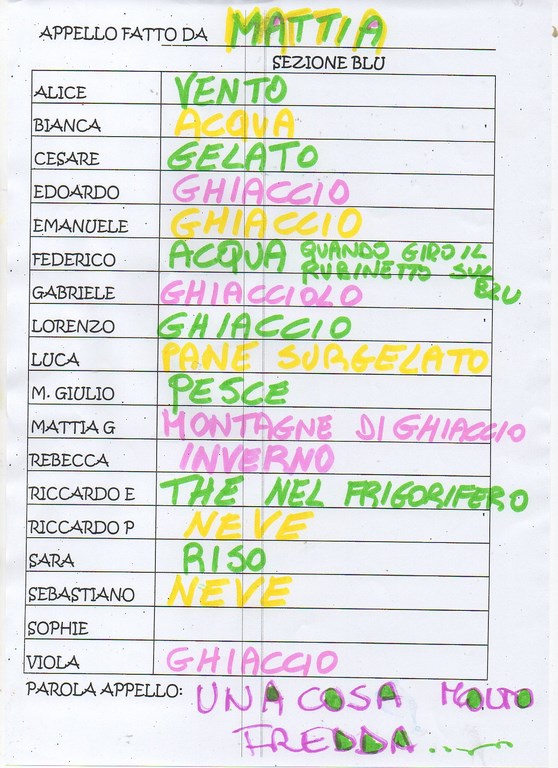 APPELLO FATTO DA MATTIA
SEZIONE BLU
ALICE VENTO
BIANCA ACQUA
CESARE GELATO
EDOARDO GHIACCIO
EMANUELE GHIACCIO
FEDERICO ACQUA QUANDO GIRO IL
RUBINETTO SUL
BLU
GABRIELE GHIACCIOLO
LORENZO GHIACCIO
LUCA PANE SURGELATO
M. GIULIO PESCE
MATTIA G MONTAGNE DI GHIACCIO
REBECCA INVERNO
RICCARDO E THE NEL FRIGORIFERO
RICCARDO P NEVE
SARA RISO
SEBASTIANO NEVE
SOPHIE
VIOLA GHIACCIO
PAROLA APPELLO: UNA COSA MOLTO
FREDDA......